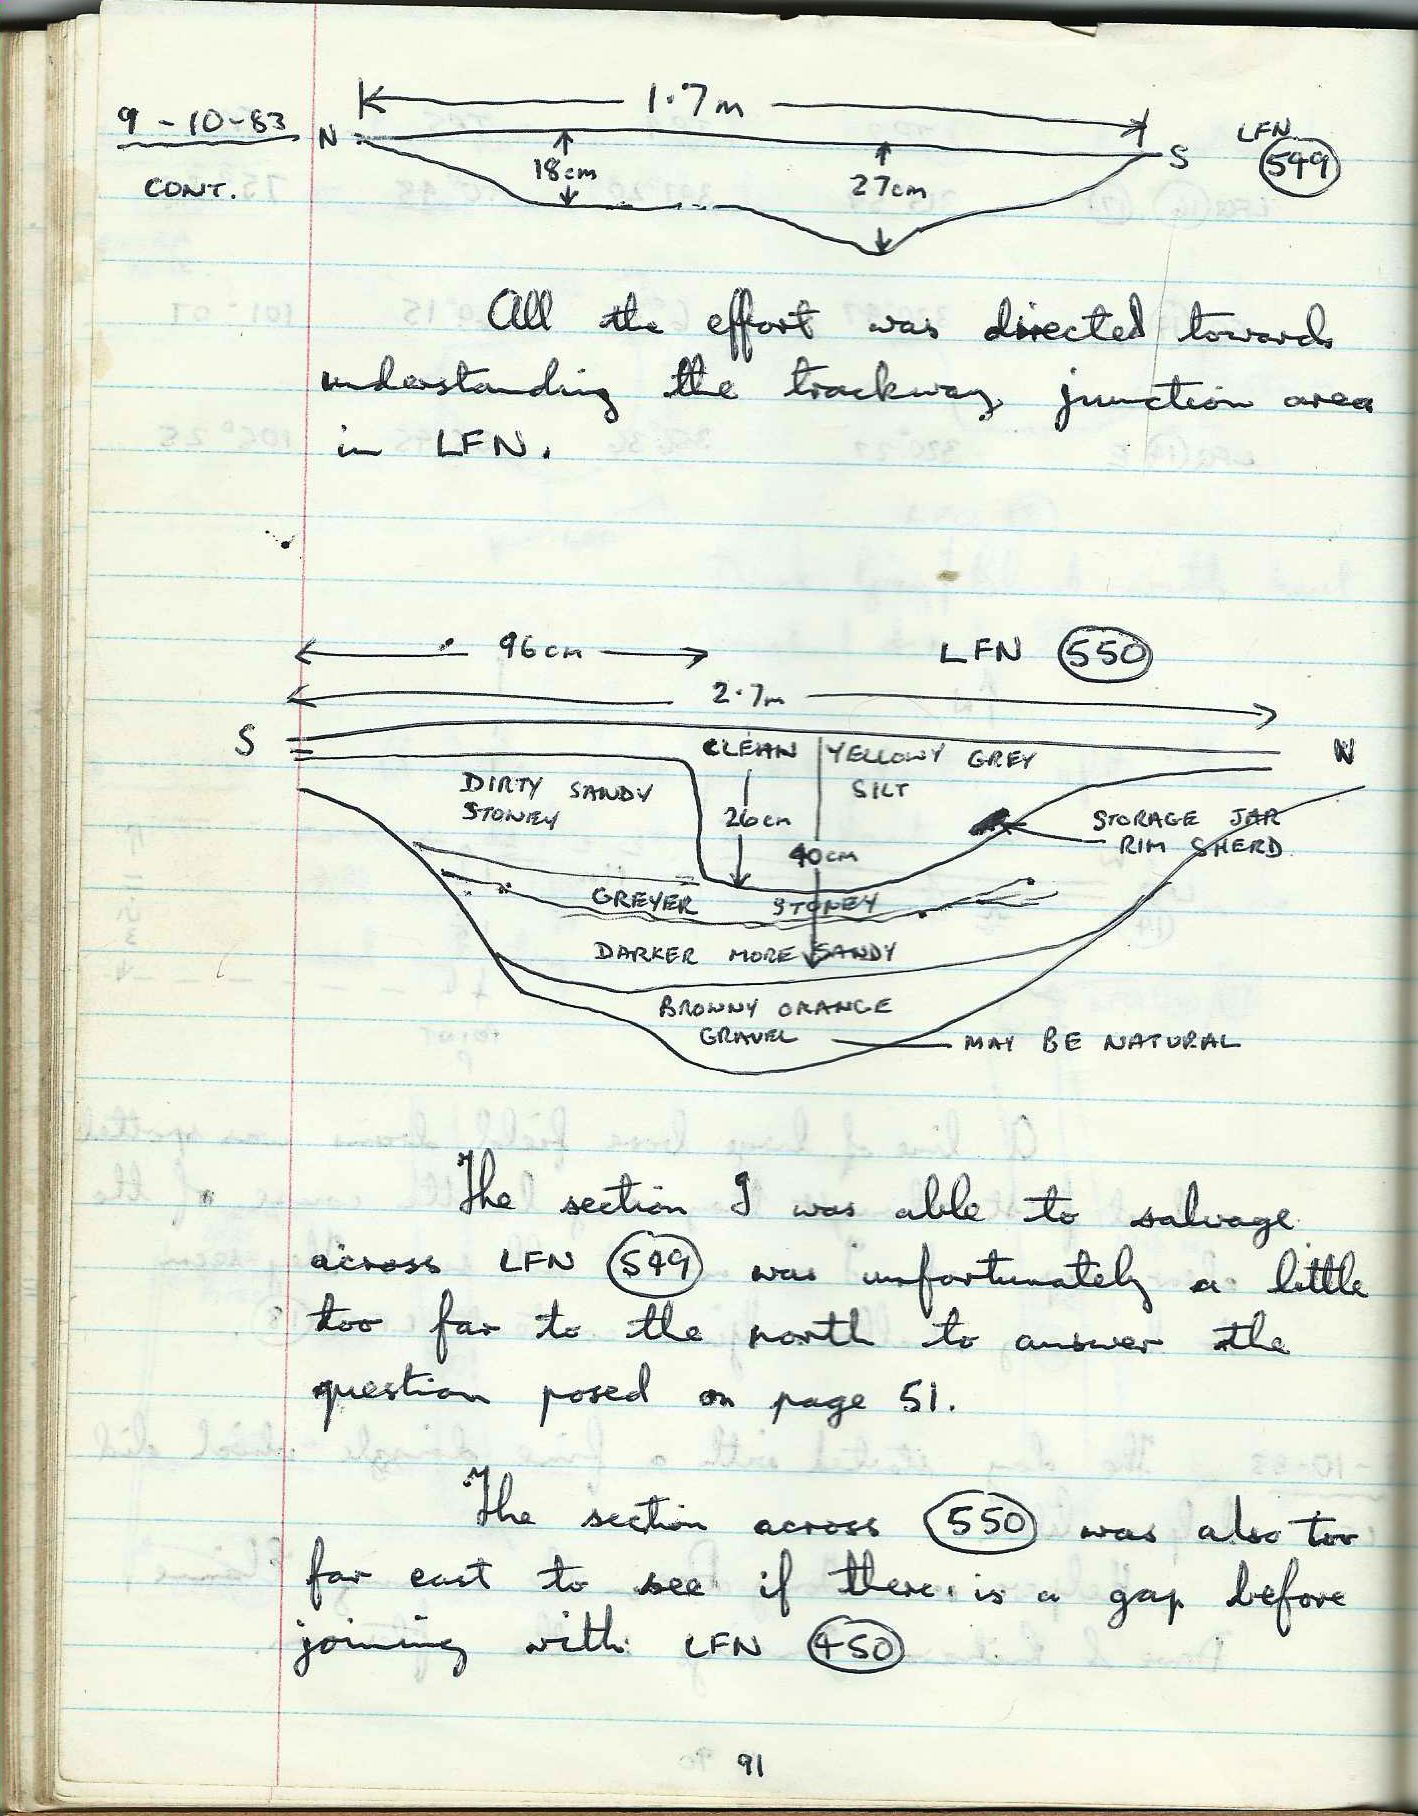 9-10-83
CONT.
1.7m
N
S
18cm
27cm
LFN
549
All the effort was directed towards
understanding the trackway junction area
in LFN.
96cm
LFN 550
2.7m
S
N
CLEAN YELLOWY GREY
SILT
DIRTY SANDY
STONEY
26cm
40cm
STORAGE JAR
RIM SHERD
GREYER STONEY
DARKER MORE SANDY
BROWNY ORANGE
GRAVEL
MAY BE NATURAL
The section I was able to salvage
across LFN 549 was unfortunately a little
too far to the north to answer the
question posed on page 51.
The section across 550 was also too
far east to see if there is a gap before
joining with LFN 450
91